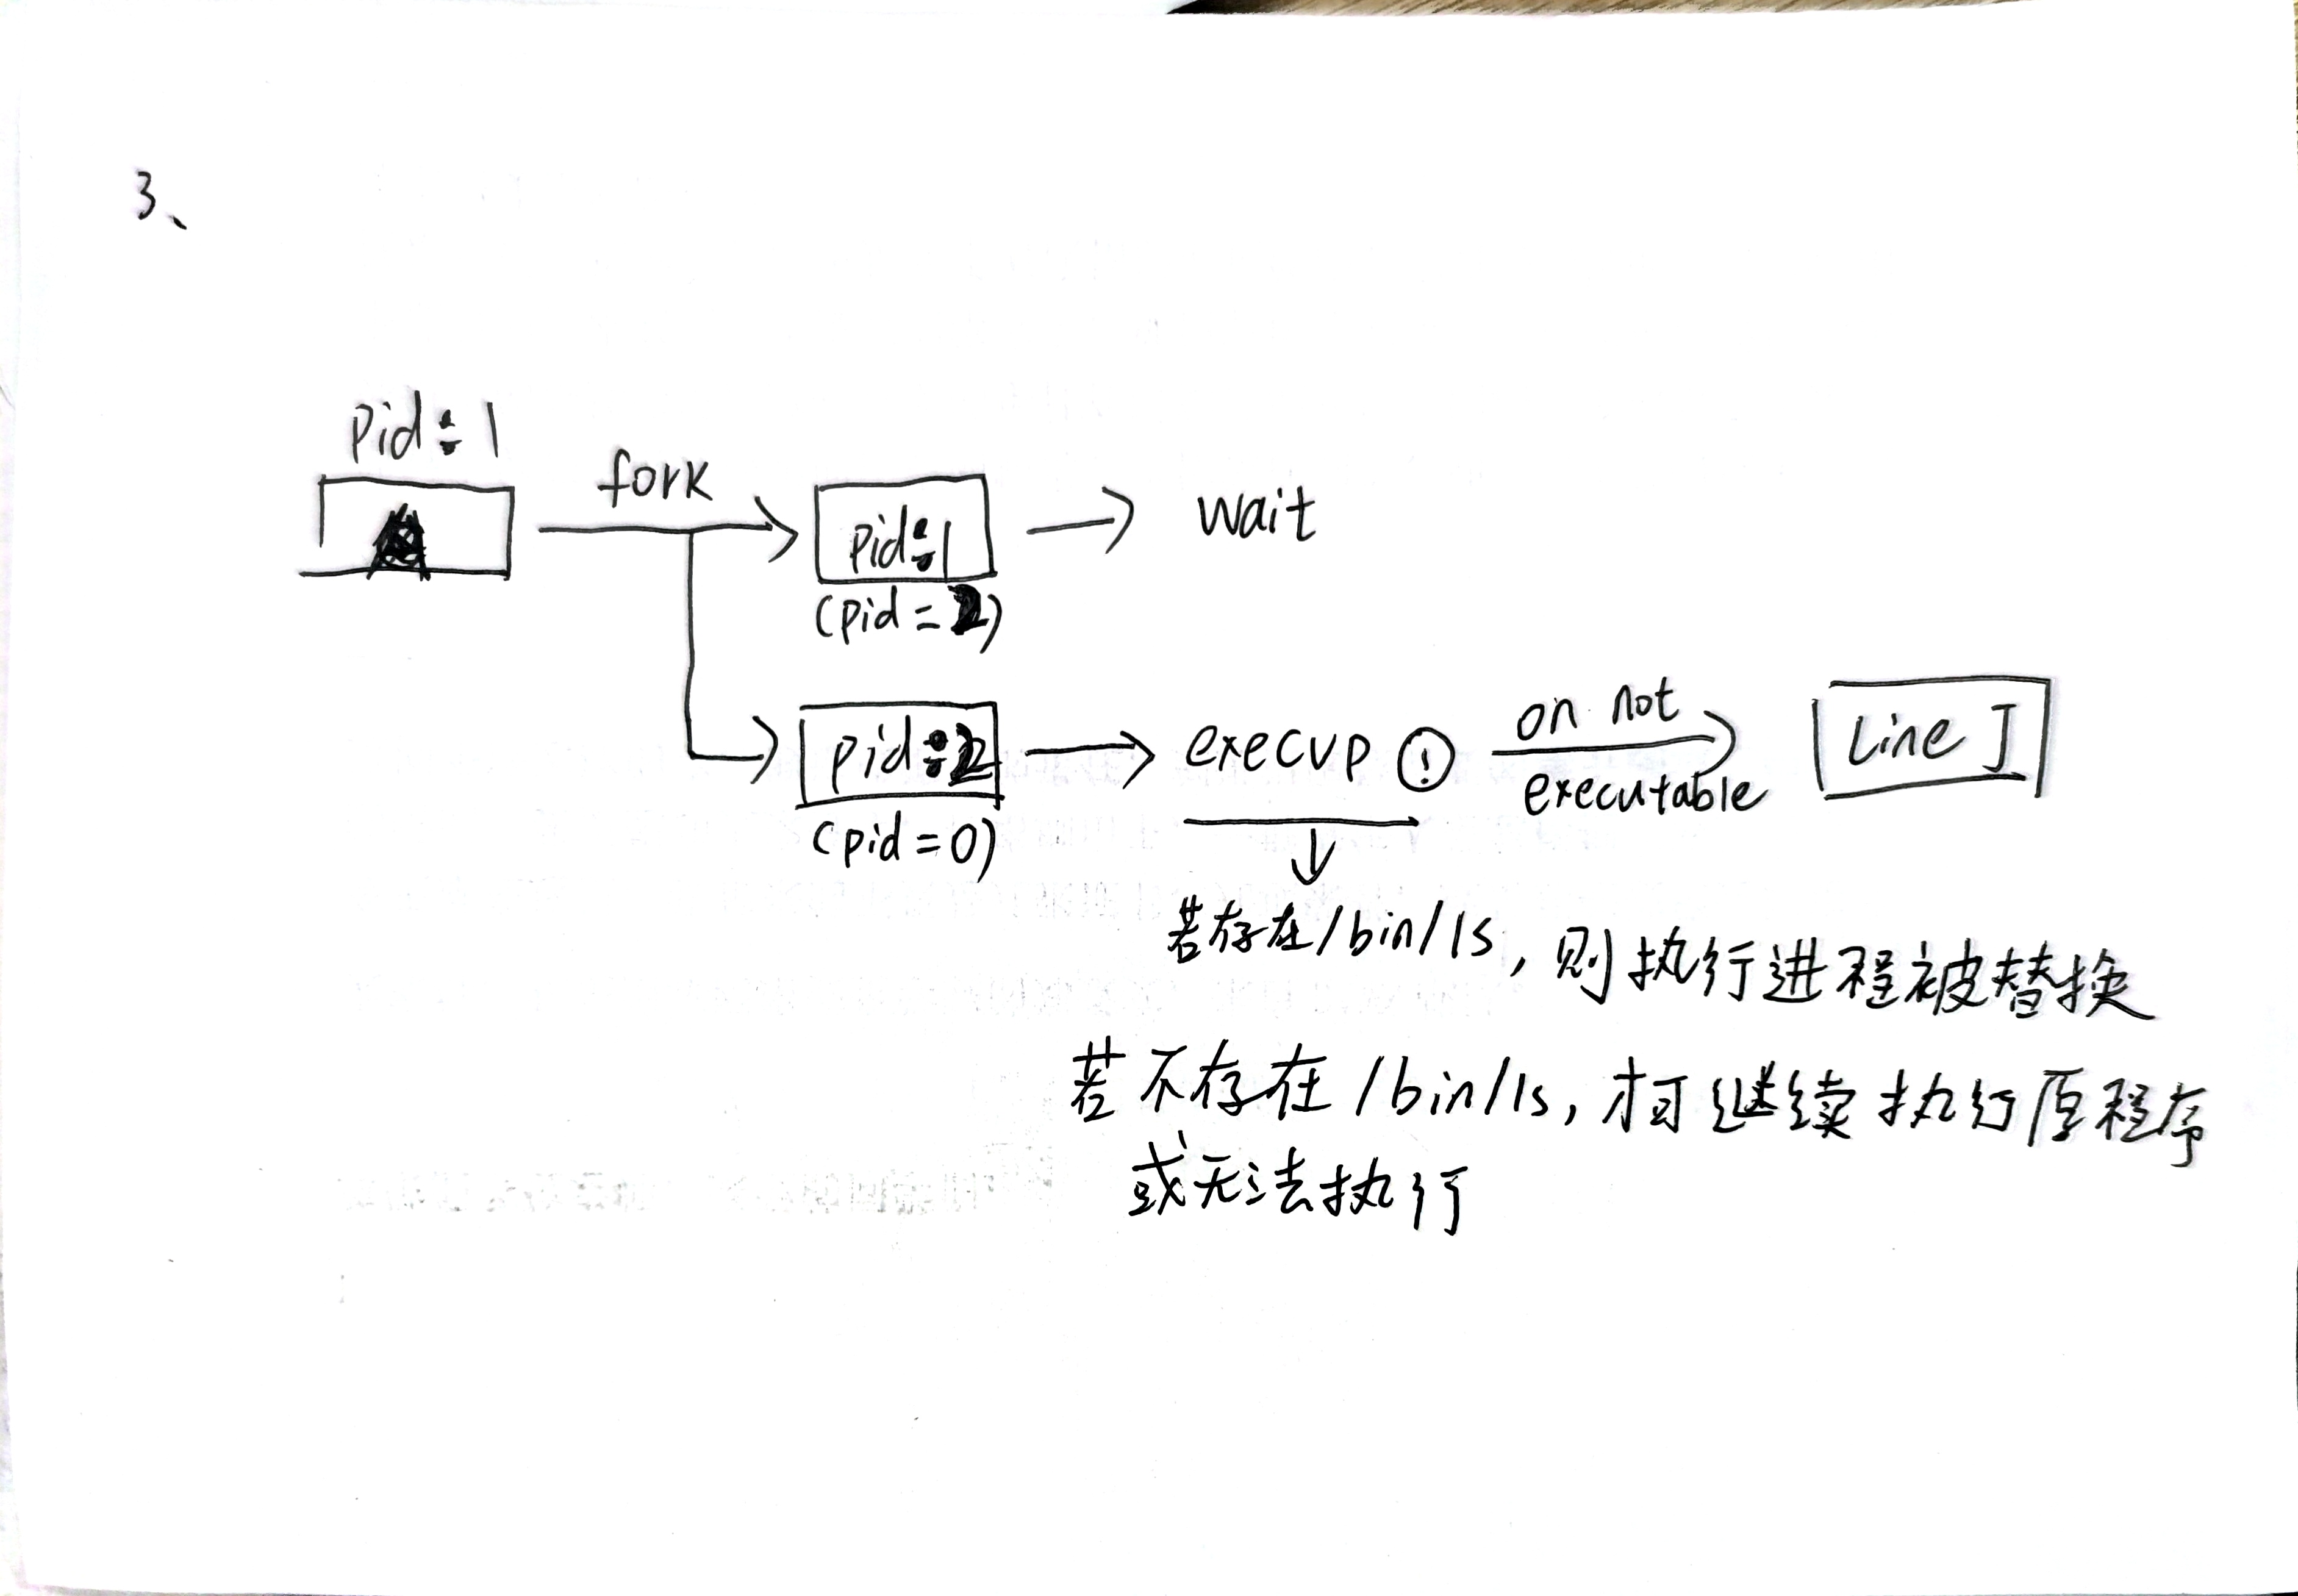 3、
pid:1
fork
pid:1
(pid=2)
wait
pid:2
(pid=0)
execvp !
on not
executable
Line J
若存在/bin/ls,则执行进程被替换
若不存在/bin/ls,才可继续执行原程序
或无法执行